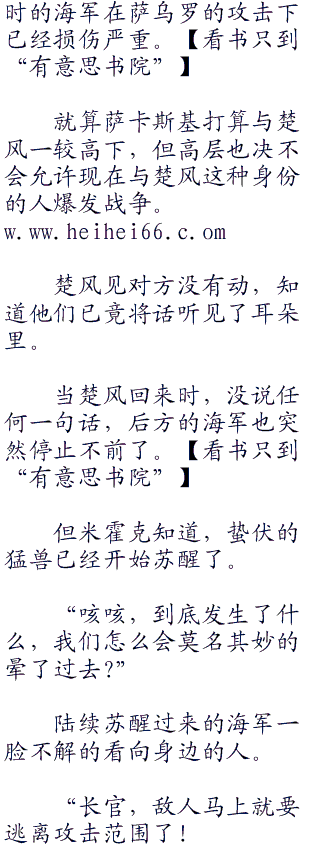 时的海军在萨乌罗的攻击下
已经损伤严重。【看书只到
“有意思书院”】
就算萨卡斯基打算与楚
风一较高下，但高层也决不
会允许现在与楚风这种身份
的人爆发战争。
w.ww.heihei66.c.om
楚风见对方没有动，知
道他们已竟将话听见了耳朵
里。
当楚风回来时，没说任
何一句话，后方的海军也突
然停止不前了。【看书只到
“有意思书院”】
但米霍克知道，蛰伏的
猛兽已经开始苏醒了。
“咳咳，到底发生了什
么，我们怎么会莫名其妙的
晕了过去?”
陆续苏醒过来的海军一
脸不解的看向身边的人。
“长官，敌人马上就要
逃离攻击范围了！